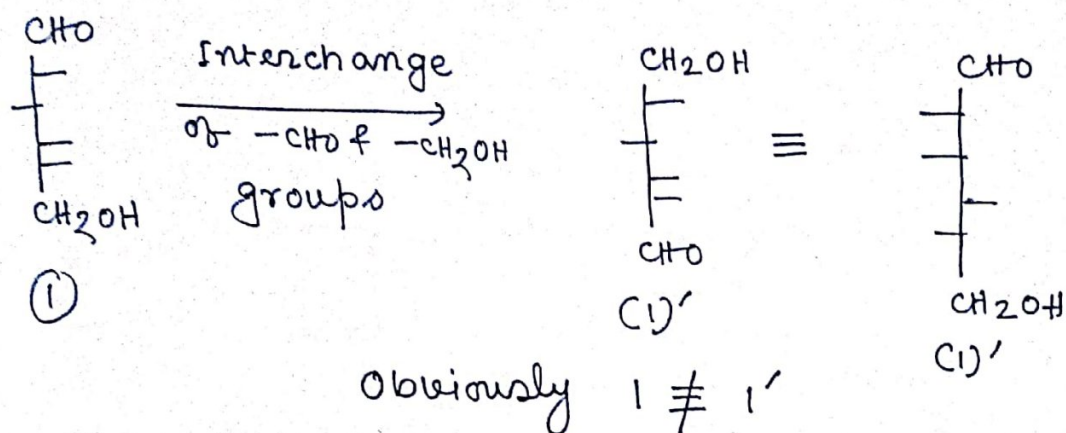 CHO
CH2OH
①
Interchange
of -CHO & -CH2OH
groups
CH2OH
CHO
(1)′
≡
CHO
CH2OH
(1)′
Obviously 1 ≢ 1′